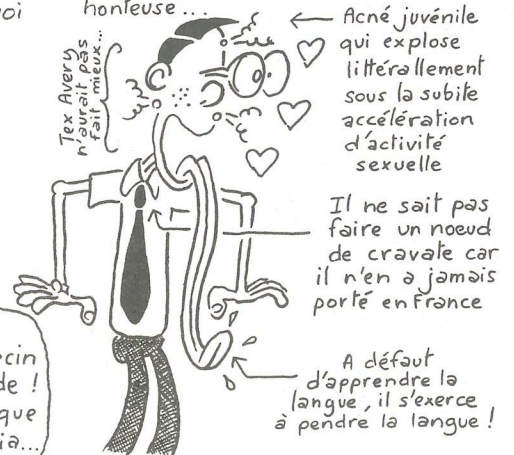 oi
honteuse...
Tex Avery
n'aurait pas
fait mieux...
Acné juvénile
qui explose
littérallement
sous la subite
accélération
d'activité
sexuelle
Il ne sait pas
faire un noeud
de cravate car
il n'en a jamais
porté en France
A défaut
d'apprendre la
langue, il s'exerce
à pendre la langue !
cin
de !
que
ia...